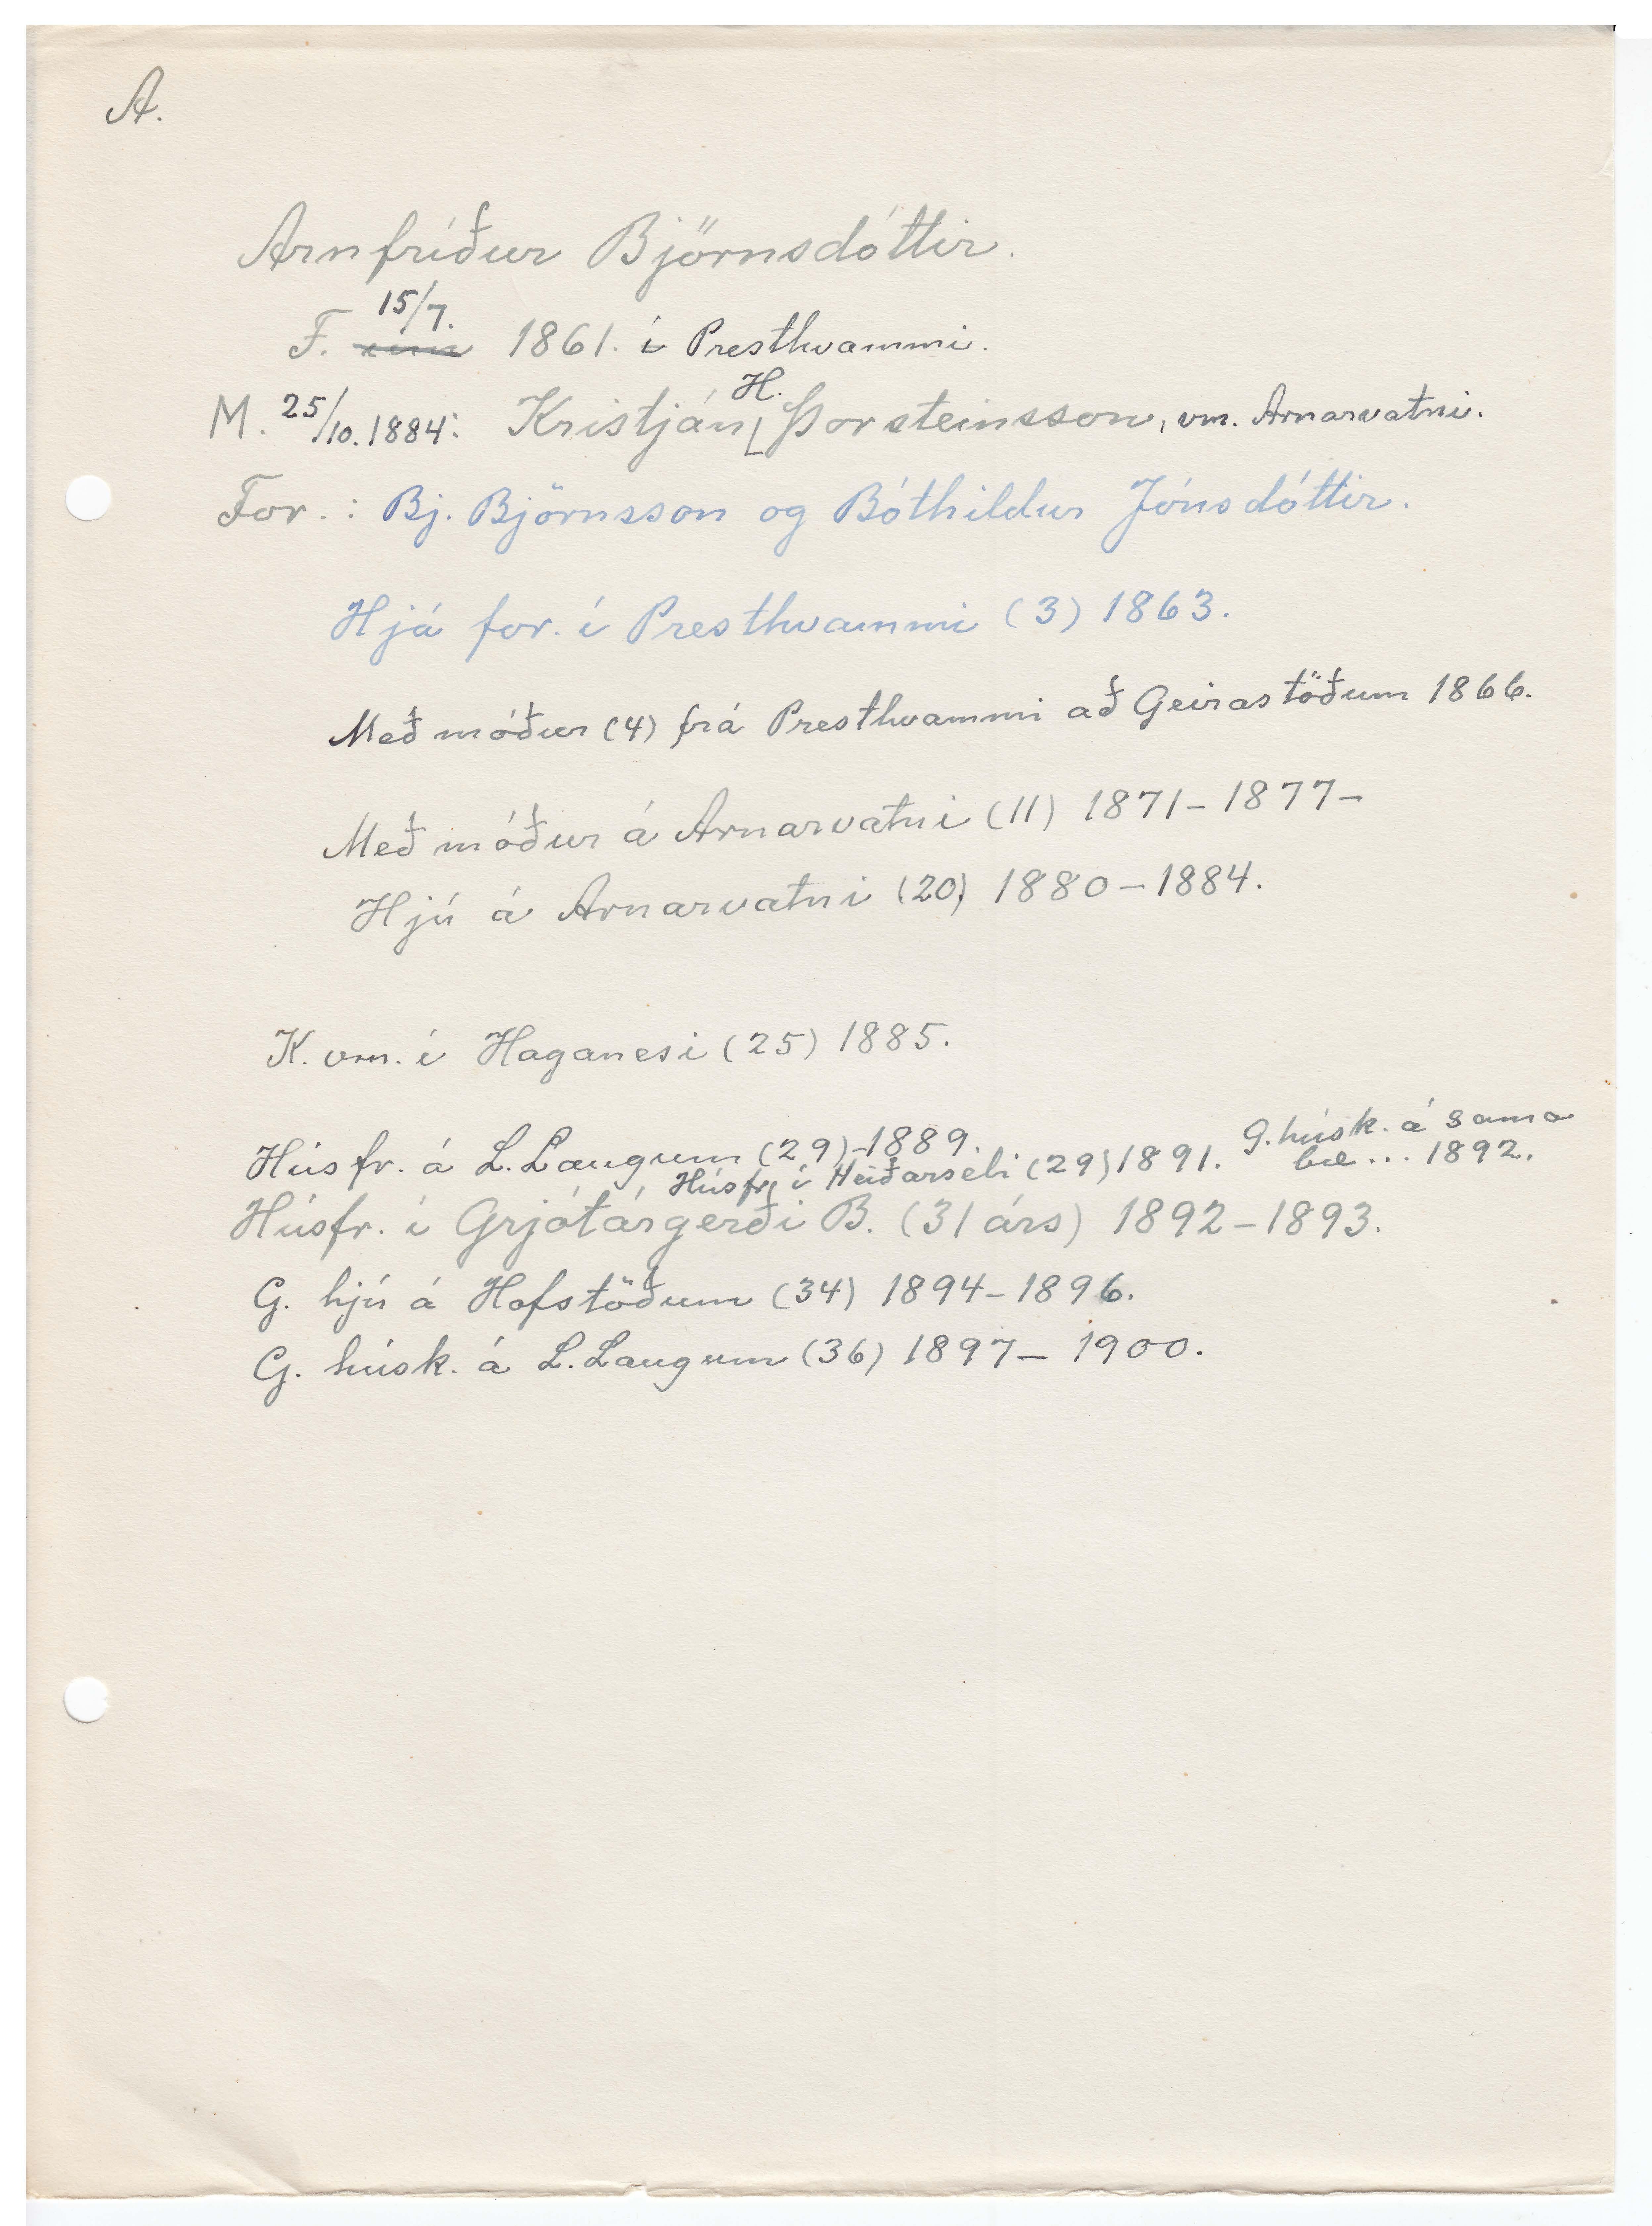 A.
Arnfríður Björnsdóttir.
F. um 15/7. 1861. í Presthvammi.
M. 25/10. 1884: Kristján H. Þorsteinsson, vm. Arnarvatni.
For.: Bj. Björnsson og Bóthildur Jónsdóttir.
Hjá for. í Presthvammi (3) 1863.
Með móður (4) frá Presthvammi að Geirastöðum 1866.
Með móður á Arnarvatni (11) 1871-1877-
Hjú á Arnarvatni (20) 1880-1884.
K. vm. í Haganesi (25) 1885.
Húsfr. á L. Laugum (29)-1889.
Húsfr. í Heiðarseli (29) 1891. G. húsk. á sama
bæ... 1892.
Húsfr. í Grjótárgerði B. (31 árs) 1892-1893.
G. hjú á Hofstöðum (34) 1894-1896.
G. húsk. á L. Laugum (36) 1897- 1900.